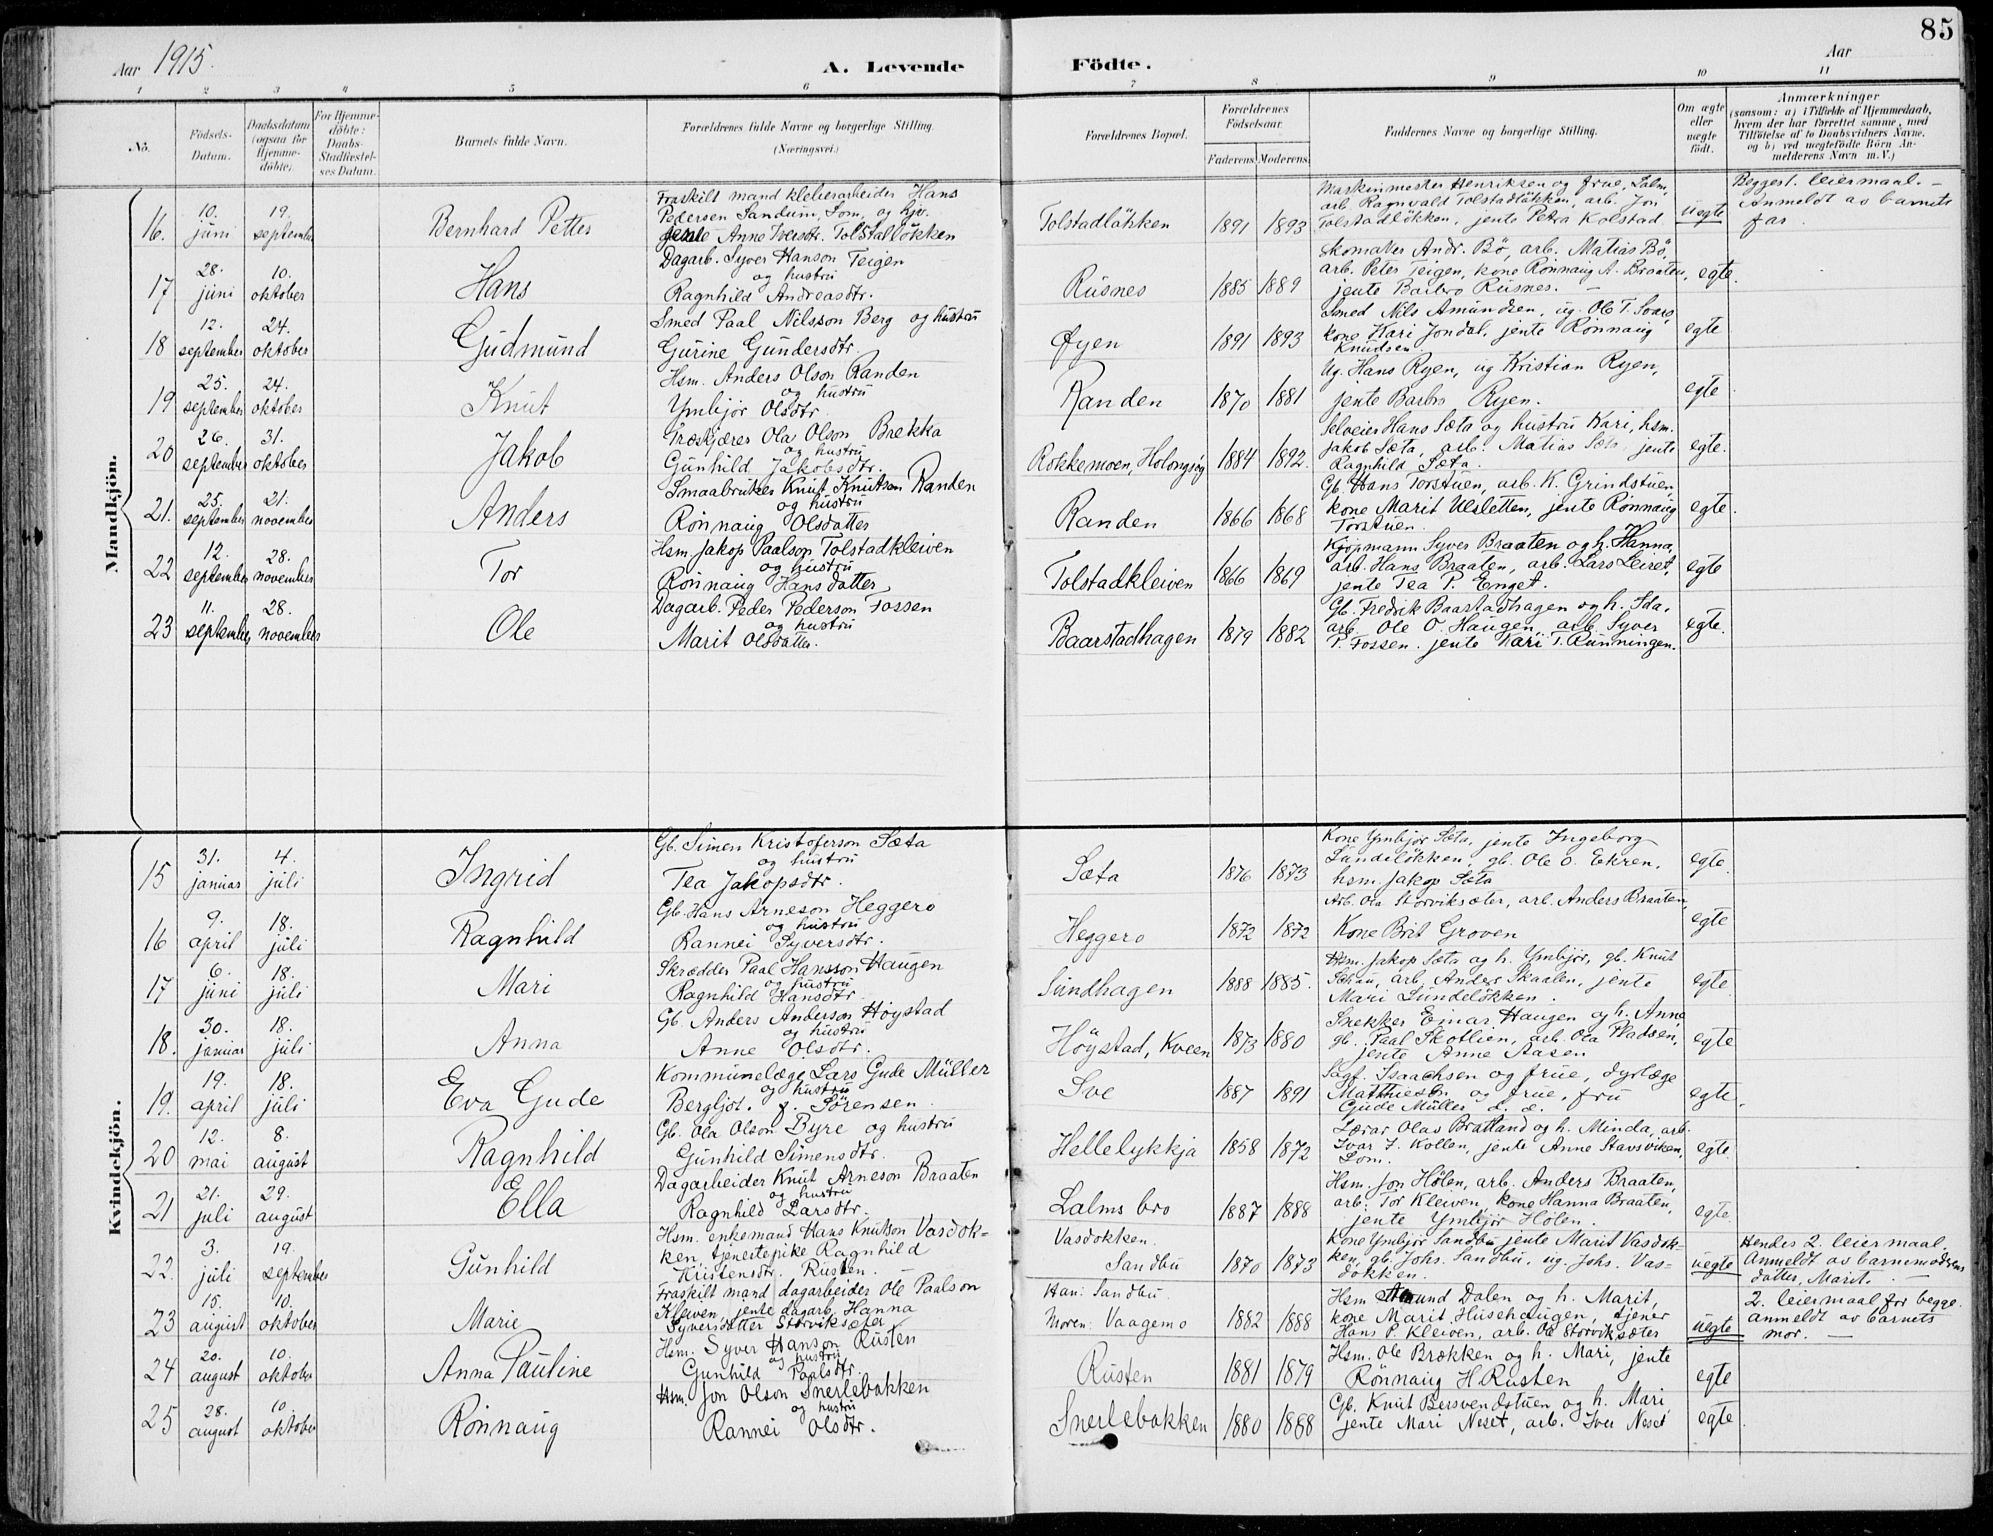 Aar 1915.
A. Levende Födte.
Aar
85
1 2 3 4 5 6 7 8 9 10 11
No.
Födsels-Datum.
Daabsdatum (ogsaa for Hjemme-döbte).
For Hjemme-döbte: Daabs-Stadfæstel-ses Datum.
Barnets fulde Navn.
Forældrenes fulde Navne og borgerlige Stilling. (Næringsvei.)
Forældrenes Bopæl.
Forældrenes Födselsaar.
Faderens. Moderens.
Faddernes Navne og borgerlige Stilling.
Om ægte eller uægte födt.
Anmærkninger
(saasom: a) i Tilfælde af Hjemmedaab,
hvem der har forrettet samme, med
Tilföielse af to Daabsvidners Navne.
og b) ved uægtefödte Börn An-
melderens Navn m. V.)
Mandkjön.
16. 10. juni 19. september Bernhard Petter
Fraskilt mand kleberarbeider Hans
Pedersen Sandum, Lom, og
Anne Iversdtr. Tolstadløkken
Tolstadløkken 1891 1893
Maskinmester Henriksen og frue, Lalm,
arb. Ragnvald Tolstadløkken, arb. Jon
Tolstadløkken, jente Petra Kolstad
uegte
Begges 1. leiermaal. –
Anmeldt av barnets
far.
17 28. juni 10. oktober Hans
Dagarb. Syver Hanson Teigen
og hustru
Ragnhild Andreasdtr.
Rusnes 1885 1889
Skomaker Andr. Bø, arb. Matias Bø,
arb. Peter Teigen, kone Rønnaug A. Braaten,
jente Barbro Rusnes. –
egte.
18 12. september 24. oktober Gudmund
Smed Paal Nilsson Berg og hustru
Gurine Gundersdtr.
Øyen 1891 1893
Smed Nils Amundsen, ug. Ole T. Svare,
kone Kari Jondal, jente Rønnaug
Knudsen
egte
19 25. september 24. oktober Knut
Hsm. Anders Olson Randen
og hustru
Ymbjør Olsdtr.
Randen 1870 1881
Ug. Hans Ryen, ug Kristian Ryen,
jente Barbro Ryen.
egte
20 26. september 31. oktober Jakob
Træskjærer Ola Olson Brekka
og hustru
Gunhild Jakobsdtr.
Rokkemoen, 1884 1892.
Selveier Hans Sæta og hustru Kari, hsm.
Jakob Sæta, arb. Matias Sæta, jente
Ragnhild Sæta.
egte.
21. 25. september 21. november Anders
Smaabruker Knut Knutson Randen
og hustru
Rønnaug Olsdatter
Randen 1866 1868
Gb. Hans Torstuen, arb. K. Grindstuen,
kone Marit Ulsletten, jente Rønnaug
Torstuen.
egte.
22 12. september 28. november Tor
Hsm. Jakop Paalson Tolstadkleiven
og hustru
Rønnaug Hansdatter
Tolstadkleiven 1866 1869
Kjøpmann Syver Braaten og h. Hanna,
arb. Hans Braaten, arb. Lars Leiret,
jente Tea P. Enget.
egte
23 11. september 28. november Ole
Dagarb. Peder Pederson Fossen
og hustru
Marit Olsdatter.
Baarstadhagen 1879 1882
Gb. Fredrik Baarstadhagen og h. Ida,
arb. Ole O. Haugen, arb. Syver
P. Fossen. jente Kari T. Runningen.
egte.
Kvindekjön.
15 31. januar 4. juli Ingrid
Gb. Simen Kristoferson Sæta
og hustru
Tea Jakopsdtr.
Sæta 1876 1873
Kone Ymbjør Sæta, jente Ingeborg
Sundeløkken, gb. Ole O. Ekren,
hsm. Jakop Sæta
egte.
16 9. april 18. juli Ragnhild
Gb. Hans Arneson Heggero
og hustru
Rannei Syversdtr.
Heggero 1872 1872
Arb. Ola Storviksæter, arb. Anders Braaten,
Kone Brit Groven
egte
17 6. juni 18. juli Mari
Skrædder Paal Hansson Haugen
og hustru
Ragnhild Hansdtr.
Sundhagen 1888 1885.
Hsm. Jakop Sæta og h. Ymbjør, gb. Knut
arb. Anders Skaalen, jente
Mari Sundeløkken.
egte
18. 30. januar 18. juli Anna
Gb. Anders Anderson Høystad
og hustru
Anne Olsdtr.
Høystad, Kveen 1873 1880
Snekker Einar Haugen og h. Anne,
gb. Paal Skotlien, arb. Ola Pladsen,
jente Anne Aasen
egte
19. 19. april 18. juli Eva Gude
Kommunelæge Lars Gude Müller
og hustru
Bergljot. f. Sørensen.
Sve 1887 1891
Sagf. Isaachsen og frue, dyrlæge
Matthieson og frue, fru
Gude Müller d. æ.
egte.
20 12. mai 8. august Ragnhild
Gb. Ola Olson Byre og hustru
Gunhild Simensdtr.
Hellelykkja 1858 1872
Lærar Olav Bratland og h. Minda, arb.
Ivar J. Kollen, jente Anne Stavsviken,
Lom.
egte.
21 21. juli 29. august Ella
Dagarbeider Knut Arneson Braaten
og hustru
Ragnhild Larsdtr.
Lalms bro 1887 1888
Hsm. Jon Hølen, arb. Anders Braaten,
arb. Tor Kleiven, kone Hanna Braaten,
jente Ymbjør Hølen.
egte.
22. 3. juli 19. september Gunhild
Hsm. enkemand Hans Knutson Vasdok-
ken tjenestepike Ragnhild
Kristensdtr. Rusten.
Vasdokken.
Sandbu 1870 1873
Kone Ymbjør Sandbu jente Marit Vasdok-
ken, gb. Johs. Sandbu, ug. Johs. Vas-
dokken.
uegte
Hendes 2. leiermaal.
Anmeldt av barnemoderens
datter, Marit. –
23 15. august 10. oktober Marie
Fraskilt mand dagarbeider Ole Paalson
Kleiven, jente dagarb. Hanna
Syversdatter Storviksæter
Han: Sandbu.
Moren: Vaagemo 1882 1888
Hsm. Amund Dalen og h. Marit,
kone Marit Husehaugen, tjener
Hans P. Kleiven, arb. Ole Storviksæter
uegte
2. leiermaal for begge.
anmeldt av barnets
mor. –
24 20. august 10. oktober Anna Pauline
Hsm. Syver Hanson Rusten
og hustru
Gunhild Paalsdtr.
Rusten 1881 1879
Hsm. Ole Brækken og h. Mari, jente
Rønnaug H. Rusten
egte
25 28. august 10. oktober Rønnaug
Hsm. Jon Olson Snerlebakken
og hustru
Rannei Olsdtr.
Snerlebakken 1880 1888
Gb. Knut Bersvendstuen og h. Mari,
jente Mari Neset, arb. Iver Neset
egte.